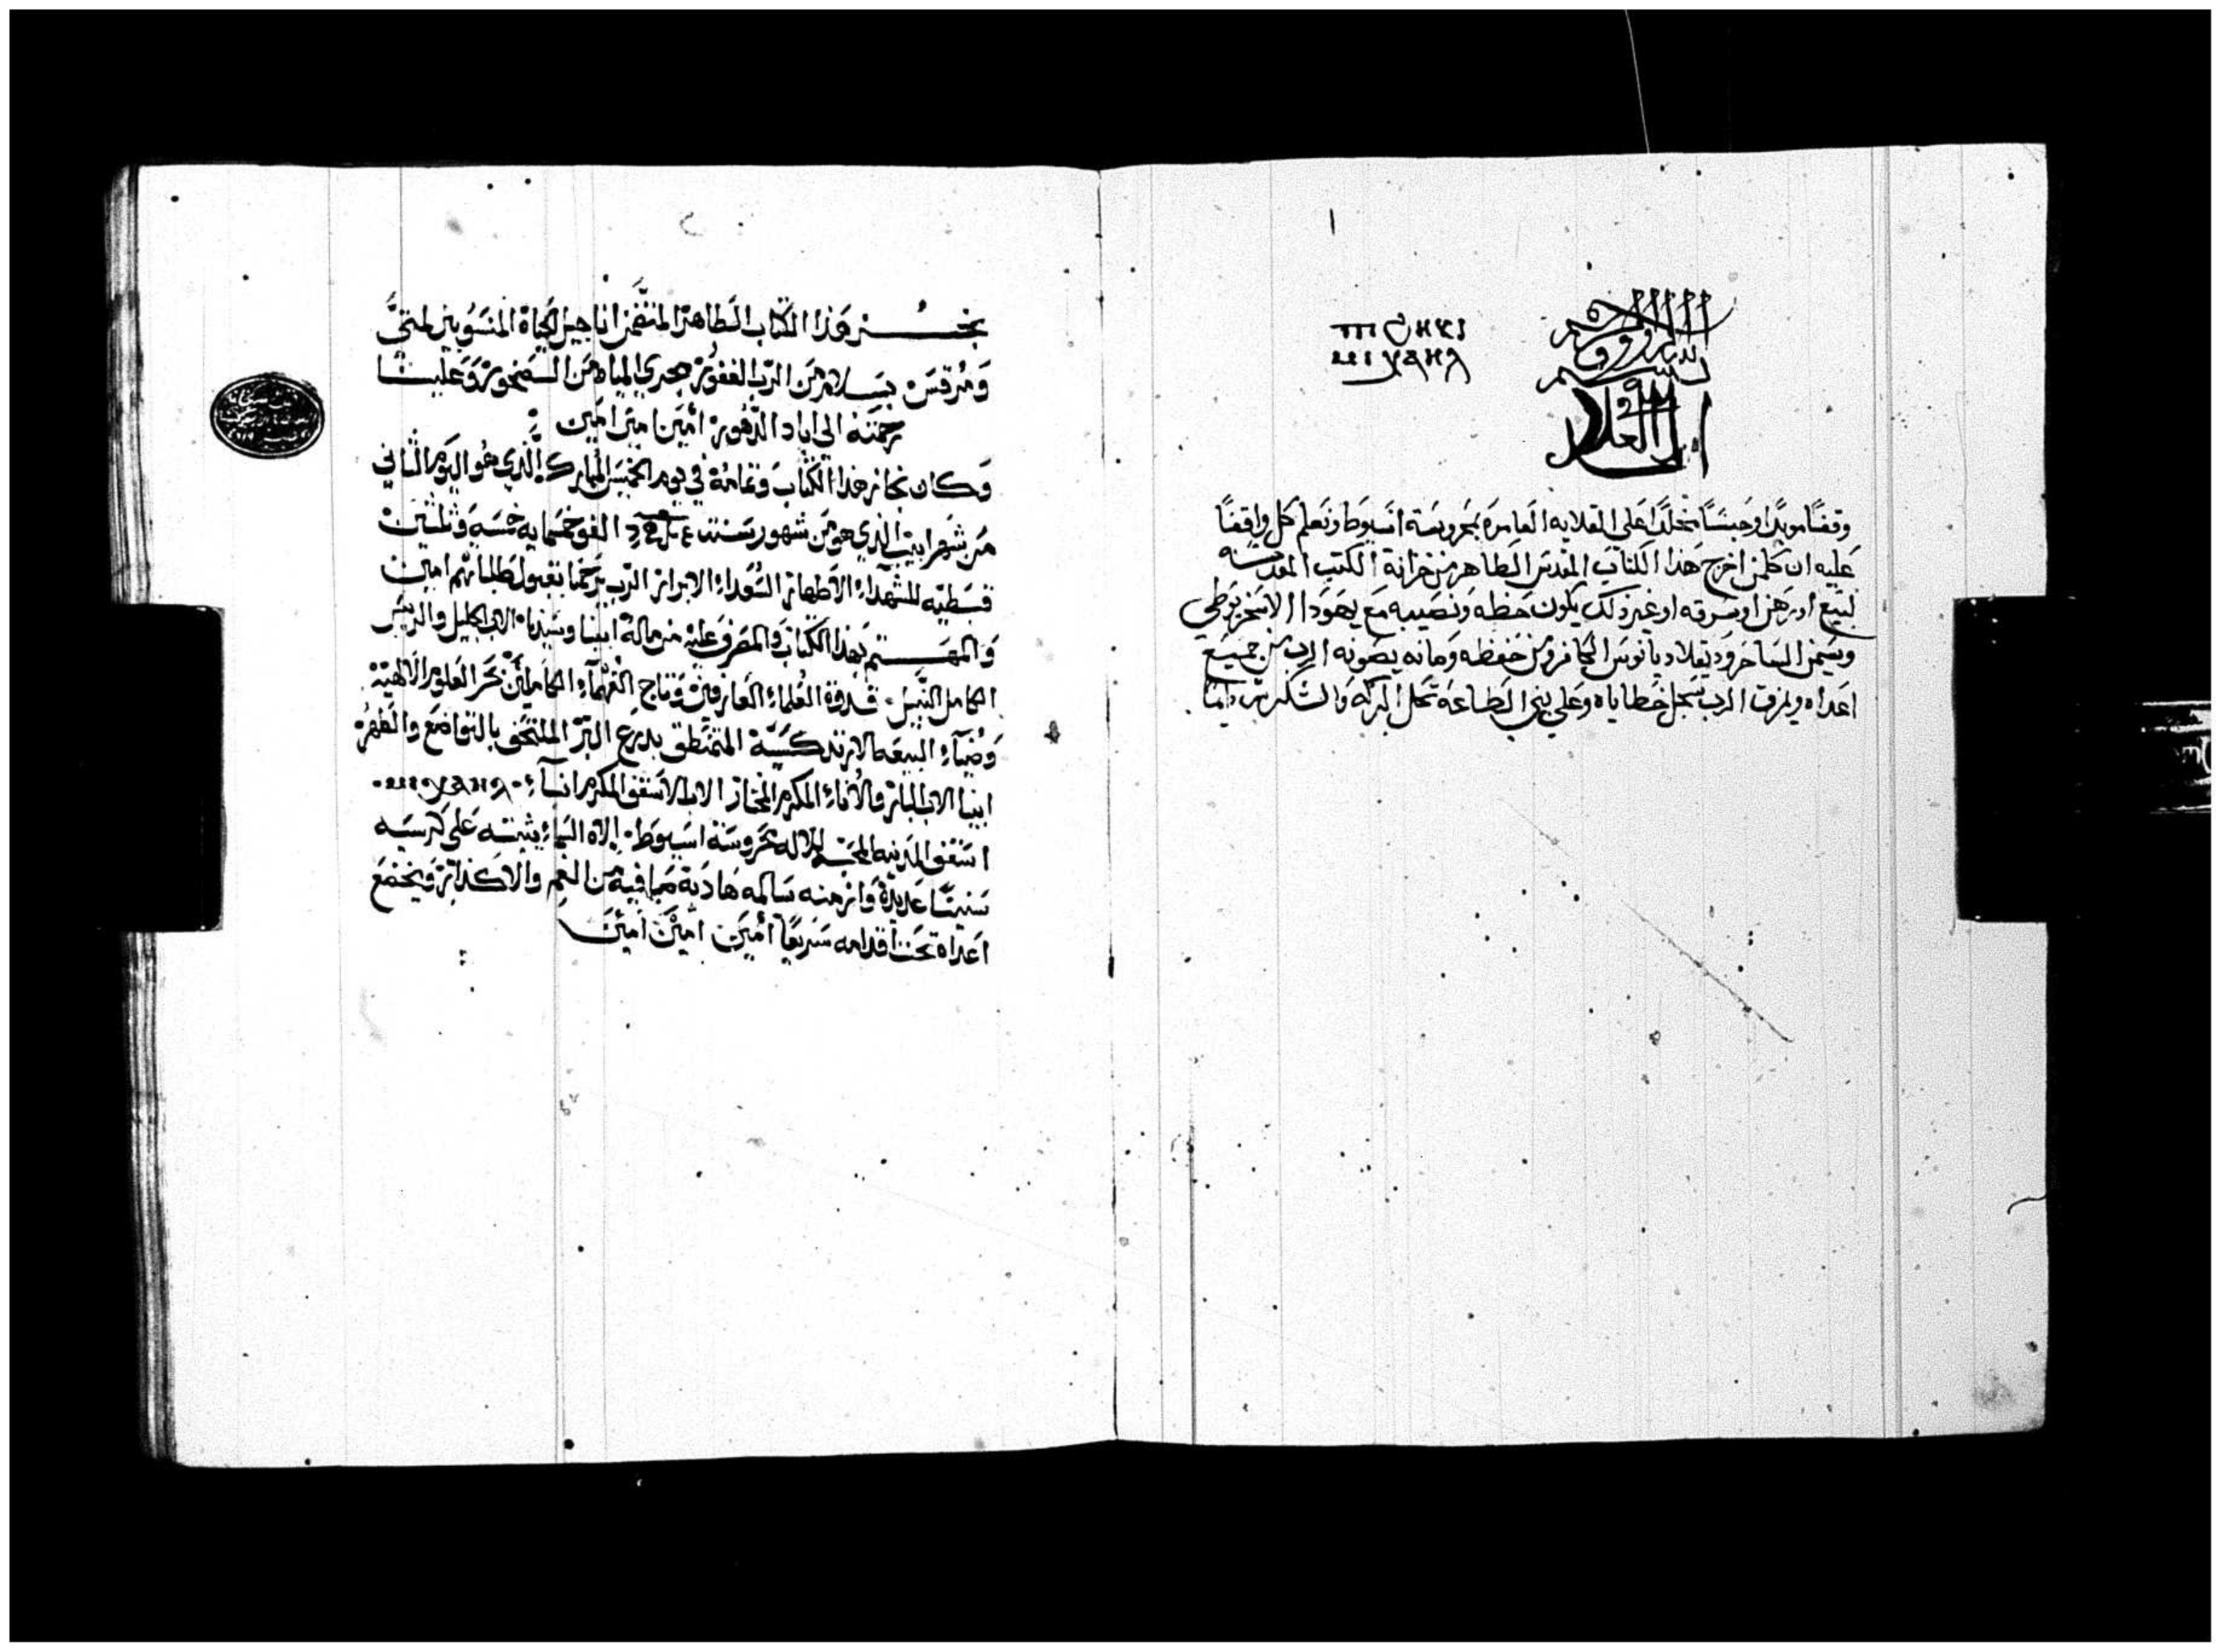 وقفًا موبدًا وحبسًا مخلدًا علي القلايه العامره بمحروسة اسيوط وتعلم كل واقفًا
عليه ان كلمن اخرج هذا الكتاب المقدس الطاهر من خزانة الكتب المقدسه
لبيع او رهن او سرقه او غير ذلك يكون حظه ونصيبه مع يهودا الاسخريوطي
وسيمن الساحر ودقلاديانوس الكافر ومن حفظه وصانه يصونه الرب من جميع
اعداه ويمزق الرب سجل خطاياه وعلي بني الطاعة تحل البركه والشكر دايمًا
نجز هذا الكتاب الطاهر المتضمن اناجيل الحياة المنسوبين لمتي
ومرقس بسلام من الرب الغفور مجري المياه من الصخور وعلينا
رحمته الي اباد الدهور امين امين امين
وكان نجاز هذا الكتاب وتمامه في يوم الخميس المبارك الذي هو اليوم الثاني
من شهر ابيب الذي هو من شهور سنة الف وخمسمايه خمسه وثلثين
قبطيه للشهداء الاطهار السعداء الابرار الرب يرحمنا بقبول طلباتهم امين
والمهتم بهذا الكتاب والمصرف عليه من ماله ابينا وسيدنا الاب الجليل والريس
الكامل النبيل قدوة العلماء العارفين وتاج الفهماء الكاملين بحر العلوم الالاهية
وضياء البيعه الارتدكسية المتمنطق بدرع البر الملتحف بالتواضع والطهره
ابينا الاب البار والاناء المكرم المختار الاب الاسقف المكرم انبا
اسقف المدينه المحبه للاله محروسة اسيوط الاه السماء يثبته علي كرسيه
سنينًا عديدة وازمنه سالمه هادية صافية من الغم والاكدار ويخضع
اعداه تحت اقدامه سريعًا امين امين امين